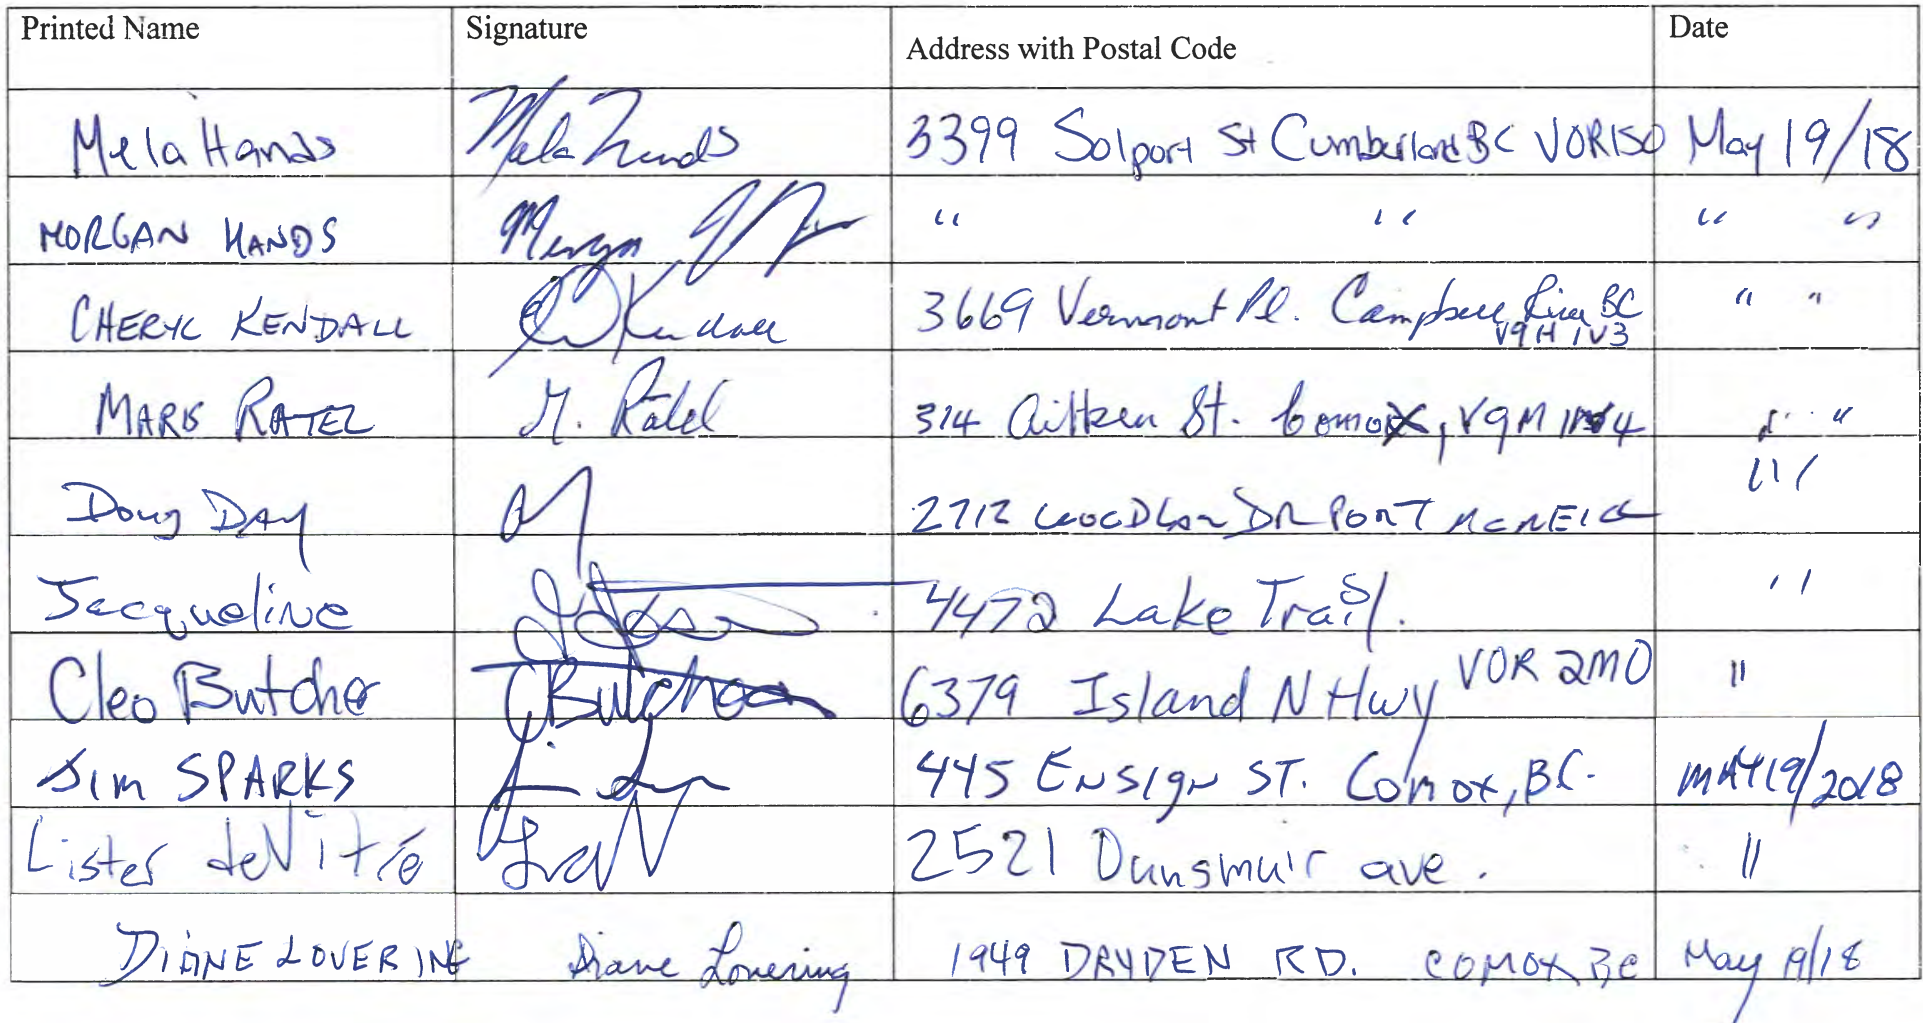 Printed Name Signature Address with Postal Code Date
Mela Hands Mela Hands 3399 Solport St Cumberland BC V0R1S0 May 19/18
MORGAN HANDS Morgan " " " "
CHERYL KENDALL C Kendall 3669 Vermont Pl. Campbell River BC V9H 1V3 " "
MARK RATEL M. Ratel 314 Aitken St. Comox, V9M " "
Doug DAY 2712 WOODLAN DR PORT MCNEILL " /
Jacqueline 4472 Lake Trail. "
Cleo Butcher CButcher 6379 Island N Hwy V0R 2M0 "
Jim SPARKS 445 ENSIGN ST. COMOX, BC. MAY 19/2018
Lister deVitré 2521 Dunsmuir ave. "
DIANE LOVERING Diane Lovering 1949 DRYDEN RD. COMOX BC May 19/18